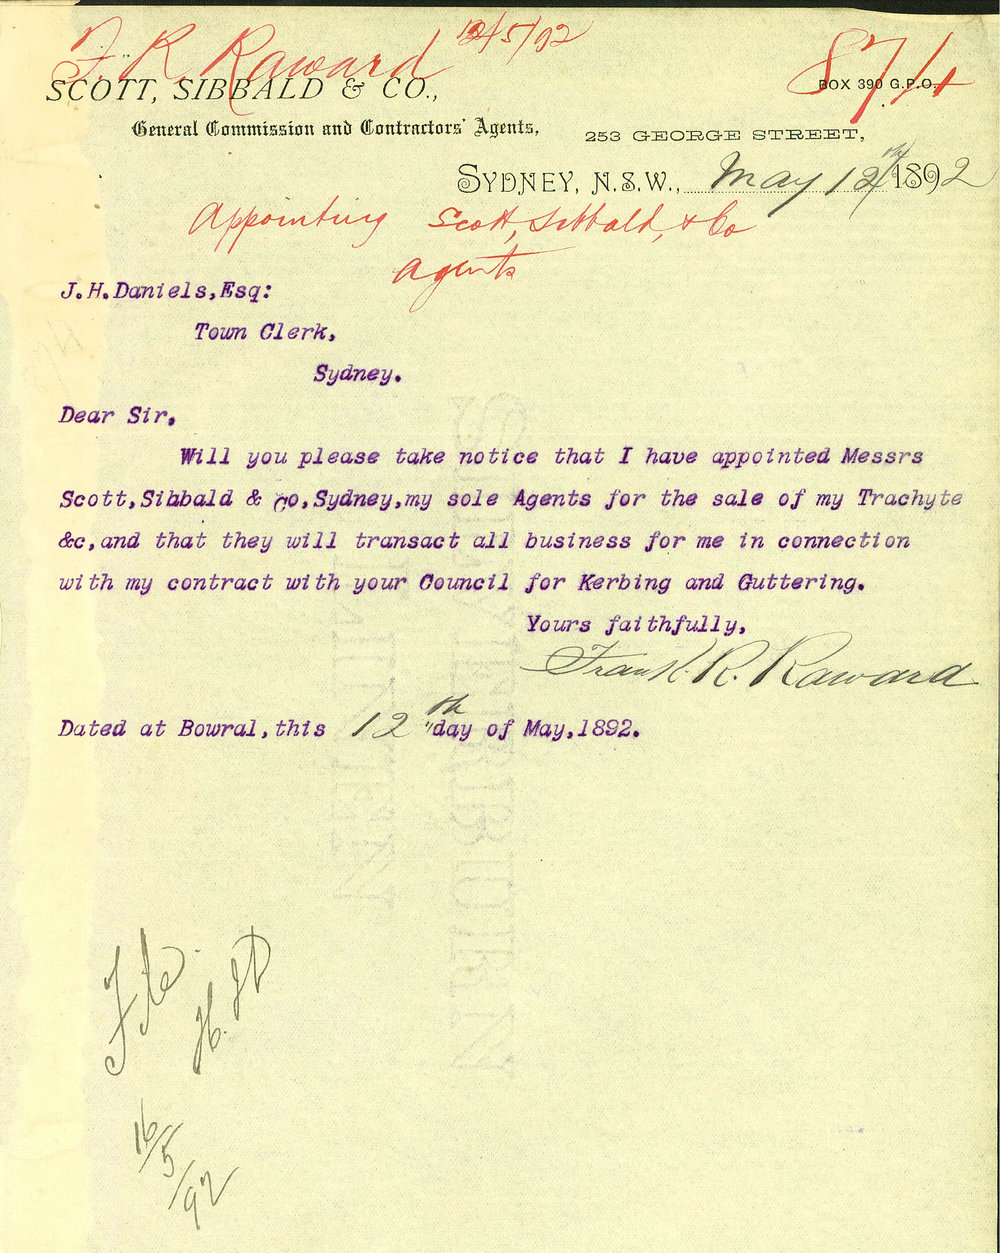 F. R. Raward 12/5/92
871
SCOTT, SIBBALD & CO.,
BOX 390 G.P.O.
General Commission and Contractors' Agents,
253 GEORGE STREET,
SYDNEY, N.S.W., May 12th 1892
Appointing Scott, Sibbald, & Co
Agents
J.H.Daniels,Esq:
Town Clerk,
Sydney.
Dear Sir,
Will you please take notice that I have appointed Messrs
Scott,Sibbald & Co,Sydney,my sole Agents for the sale of my Trachyte
&c,and that they will transact all business for me in connection
with my contract with your Council for Kerbing and Guttering.
Yours faithfully,
Frank. R. Raward
Dated at Bowral,this 12th day of May,1892.
File
16/5/92